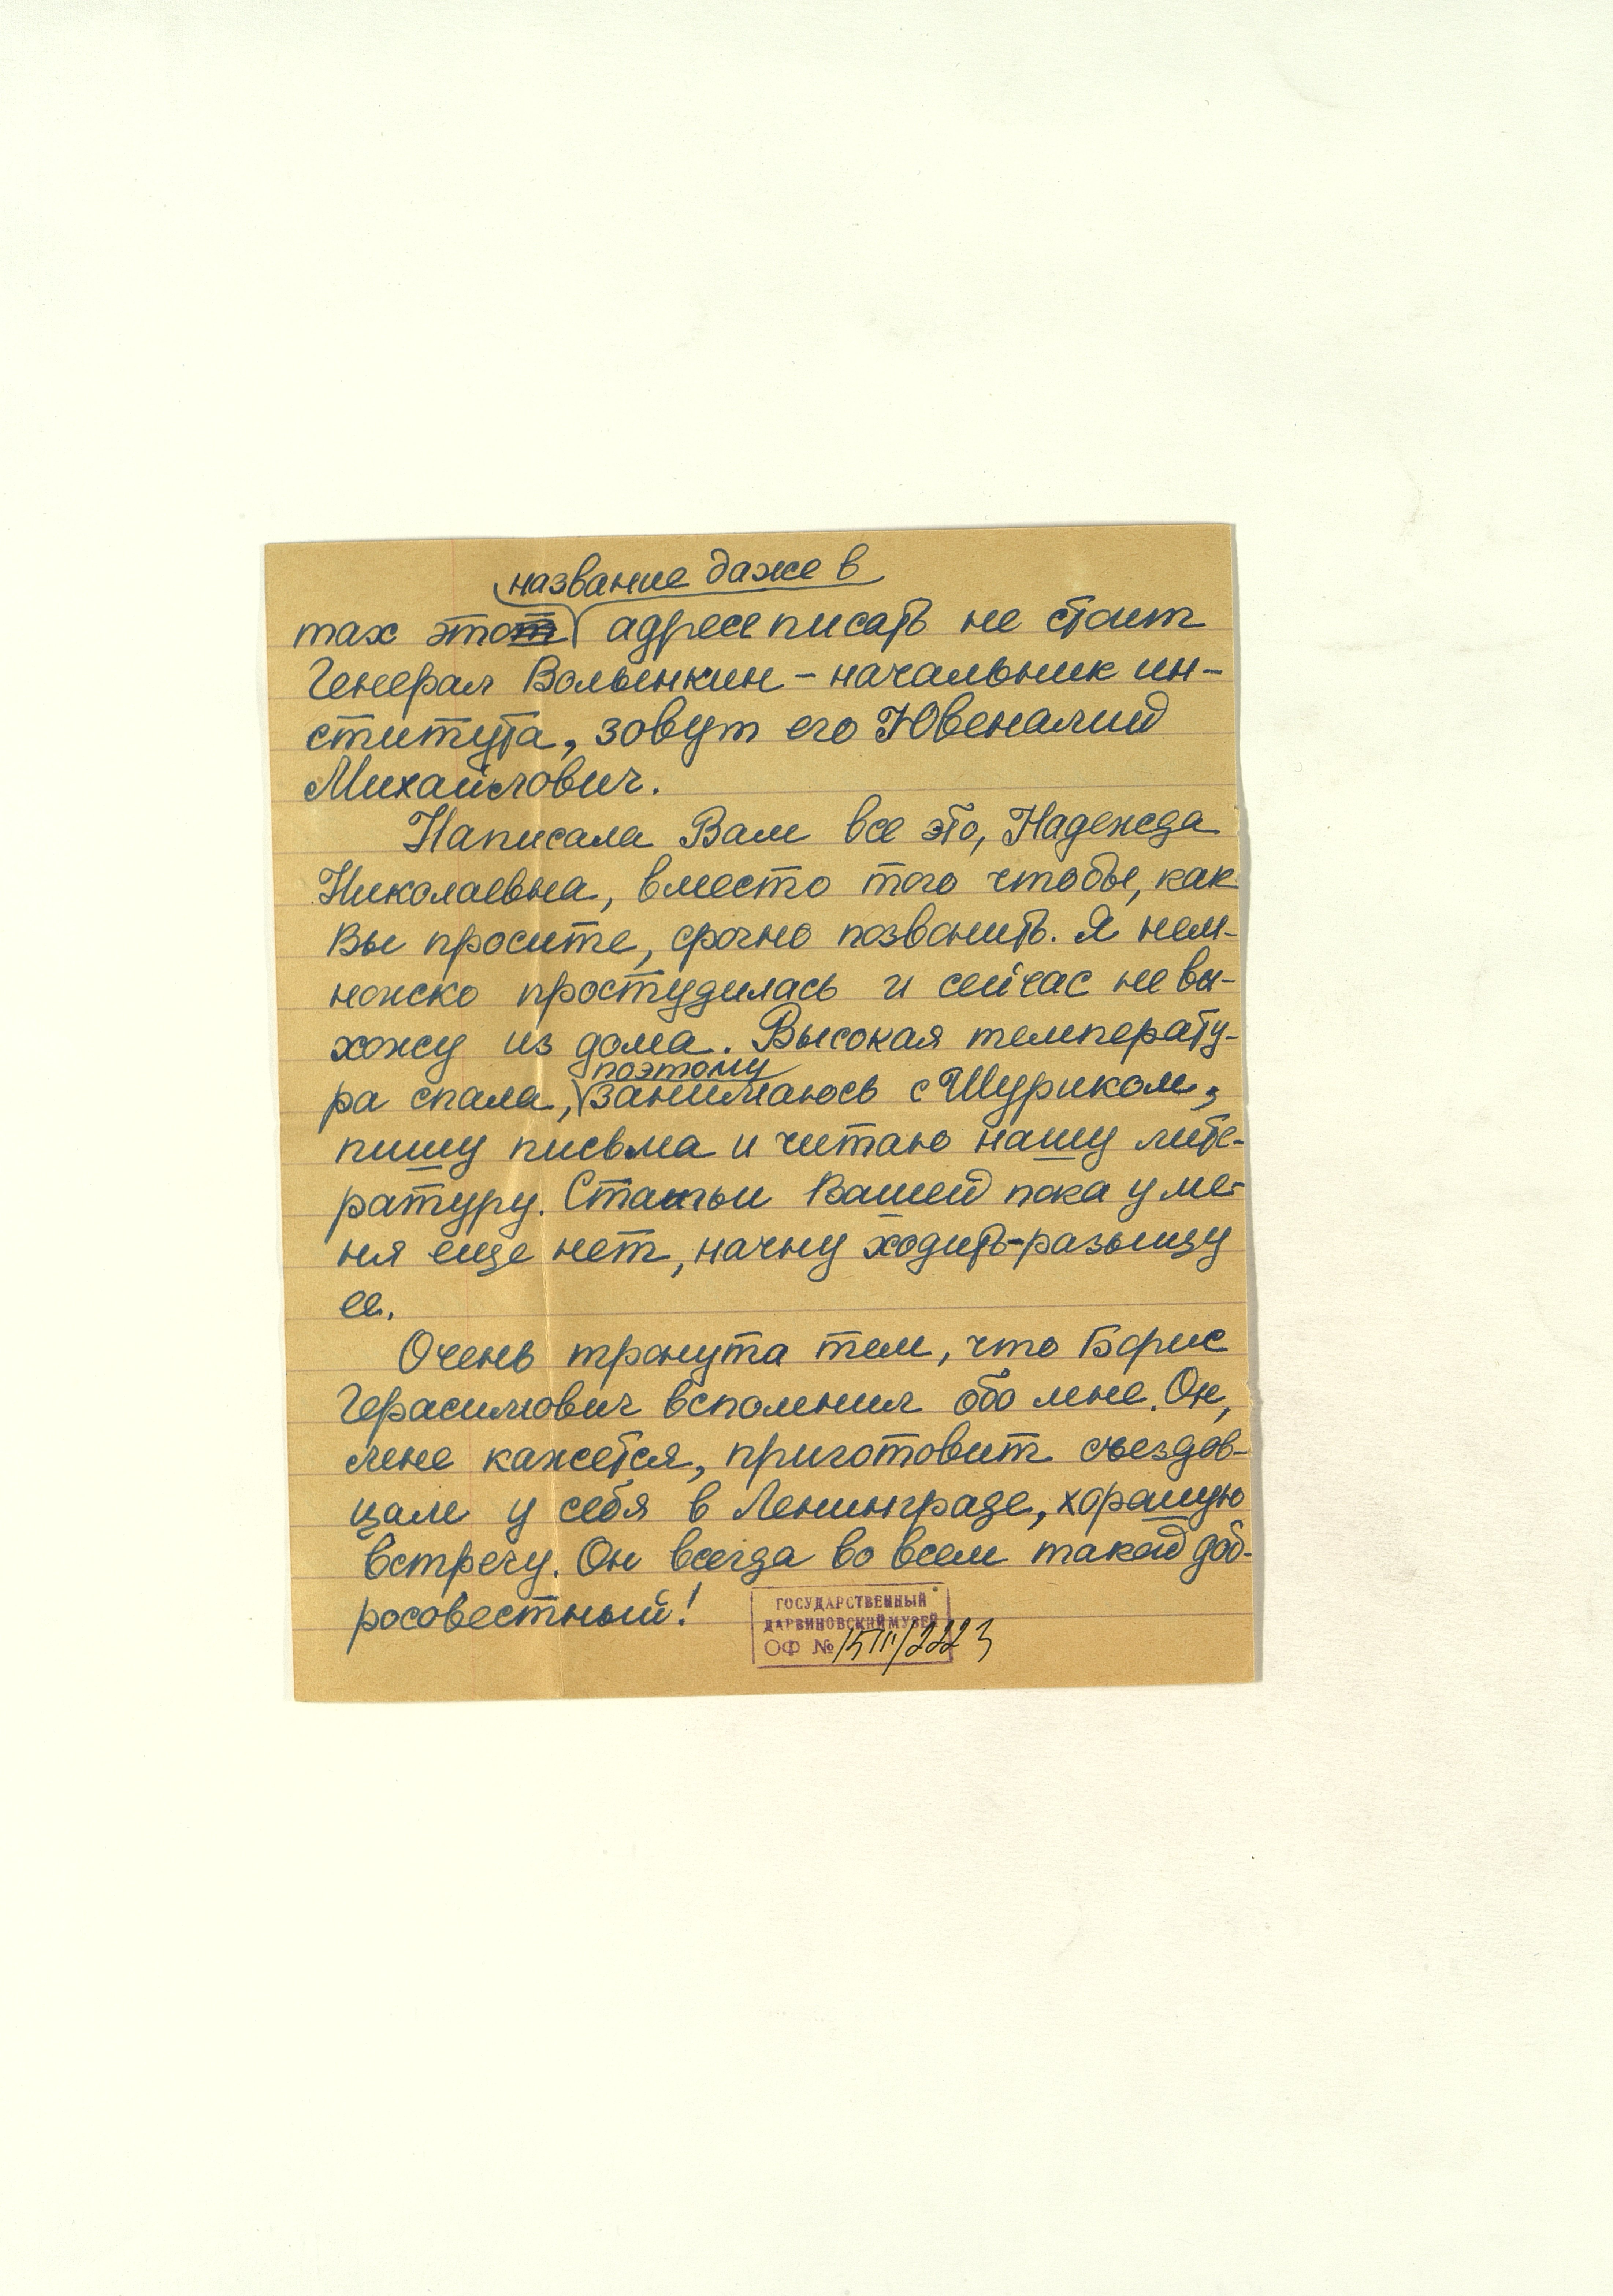 название даже в
тах это адресе писать не стоит
Генерал Волынкин – начальник ин-
ститута, зовут его Ювеналий
Михайлович.
Написала Вам все это, Надежда
Николаевна, вместо того чтобы, как
Вы просите, срочно позвонить. Я нем-
ножко простудилась и сейчас не вы-
хожу из дома. Высокая температу-
поэтому
ра спала, занимаюсь с Шуриком,
пишу письма и читаю нашу лите-
ратуру. Статьи Вашей пока у ме-
ня еще нет, начну ходить-разыщу
ее.
Очень тронута тем, что Борис
Герасимович вспомнил обо мне. Он,
мне кажется, приготовит съездов-
цам у себя в Ленинграде, хорошую
встречу. Он всегда во всем такой доб-
росовестный!
ГОСУДАРСТВЕННЫЙ
ДАРВИНОВСКИЙ МУЗЕЙ
ОФ №